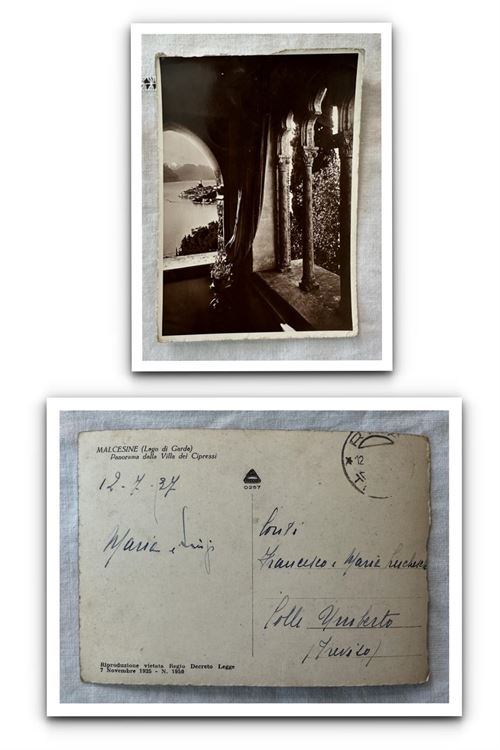 MALCESINE (Lago di Garda)
Panorama dalla Villa dei Cipressi
12-7-37
Maria e Luigi
0257
12
Conti
Francesco e Maria
Colle Umberto
(Treviso)
Riproduzione vietata Regio Decreto Legge
7 Novembre 1925 - N. 1950